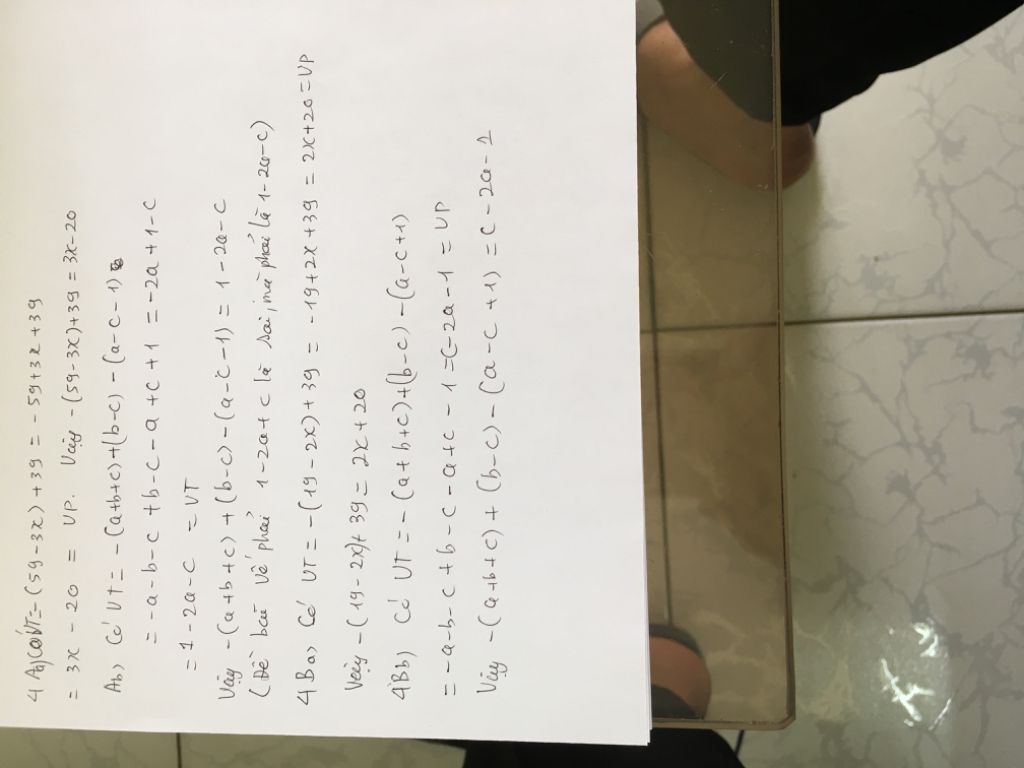 4 Aa) Có VT = - (59 - 3x) + 39 = - 59 + 3x + 39
= 3x - 20 = VP. Vậy - (59 - 3x) + 39 = 3x - 20
Ab, Có VT = - (a+b+c) + (b-c) - (a-c-1)
= -a-b-c + b-c-a+c+1 = -2a+1-c
= 1-2a-c = VT
Vậy -(a+b+c) + (b-c) - (a-c-1) = 1-2a-c
(Đề bài vế phải 1-2a+c là sai, mà phải là 1-2a-c)
4 Ba, Có VT = -(19-2x)+39 = -19+2x+39 = 2x+20 = VP
Vậy -(19-2x)+39 = 2x+20
4Bb) Có VT = - (a+b+c)+(b-c) - (a-c+1)
= -a-b-c+b-c-a+c-1 = c-2a-1 = VP
Vậy -(a+b+c) + (b-c) - (a-c+1) = c-2a-1